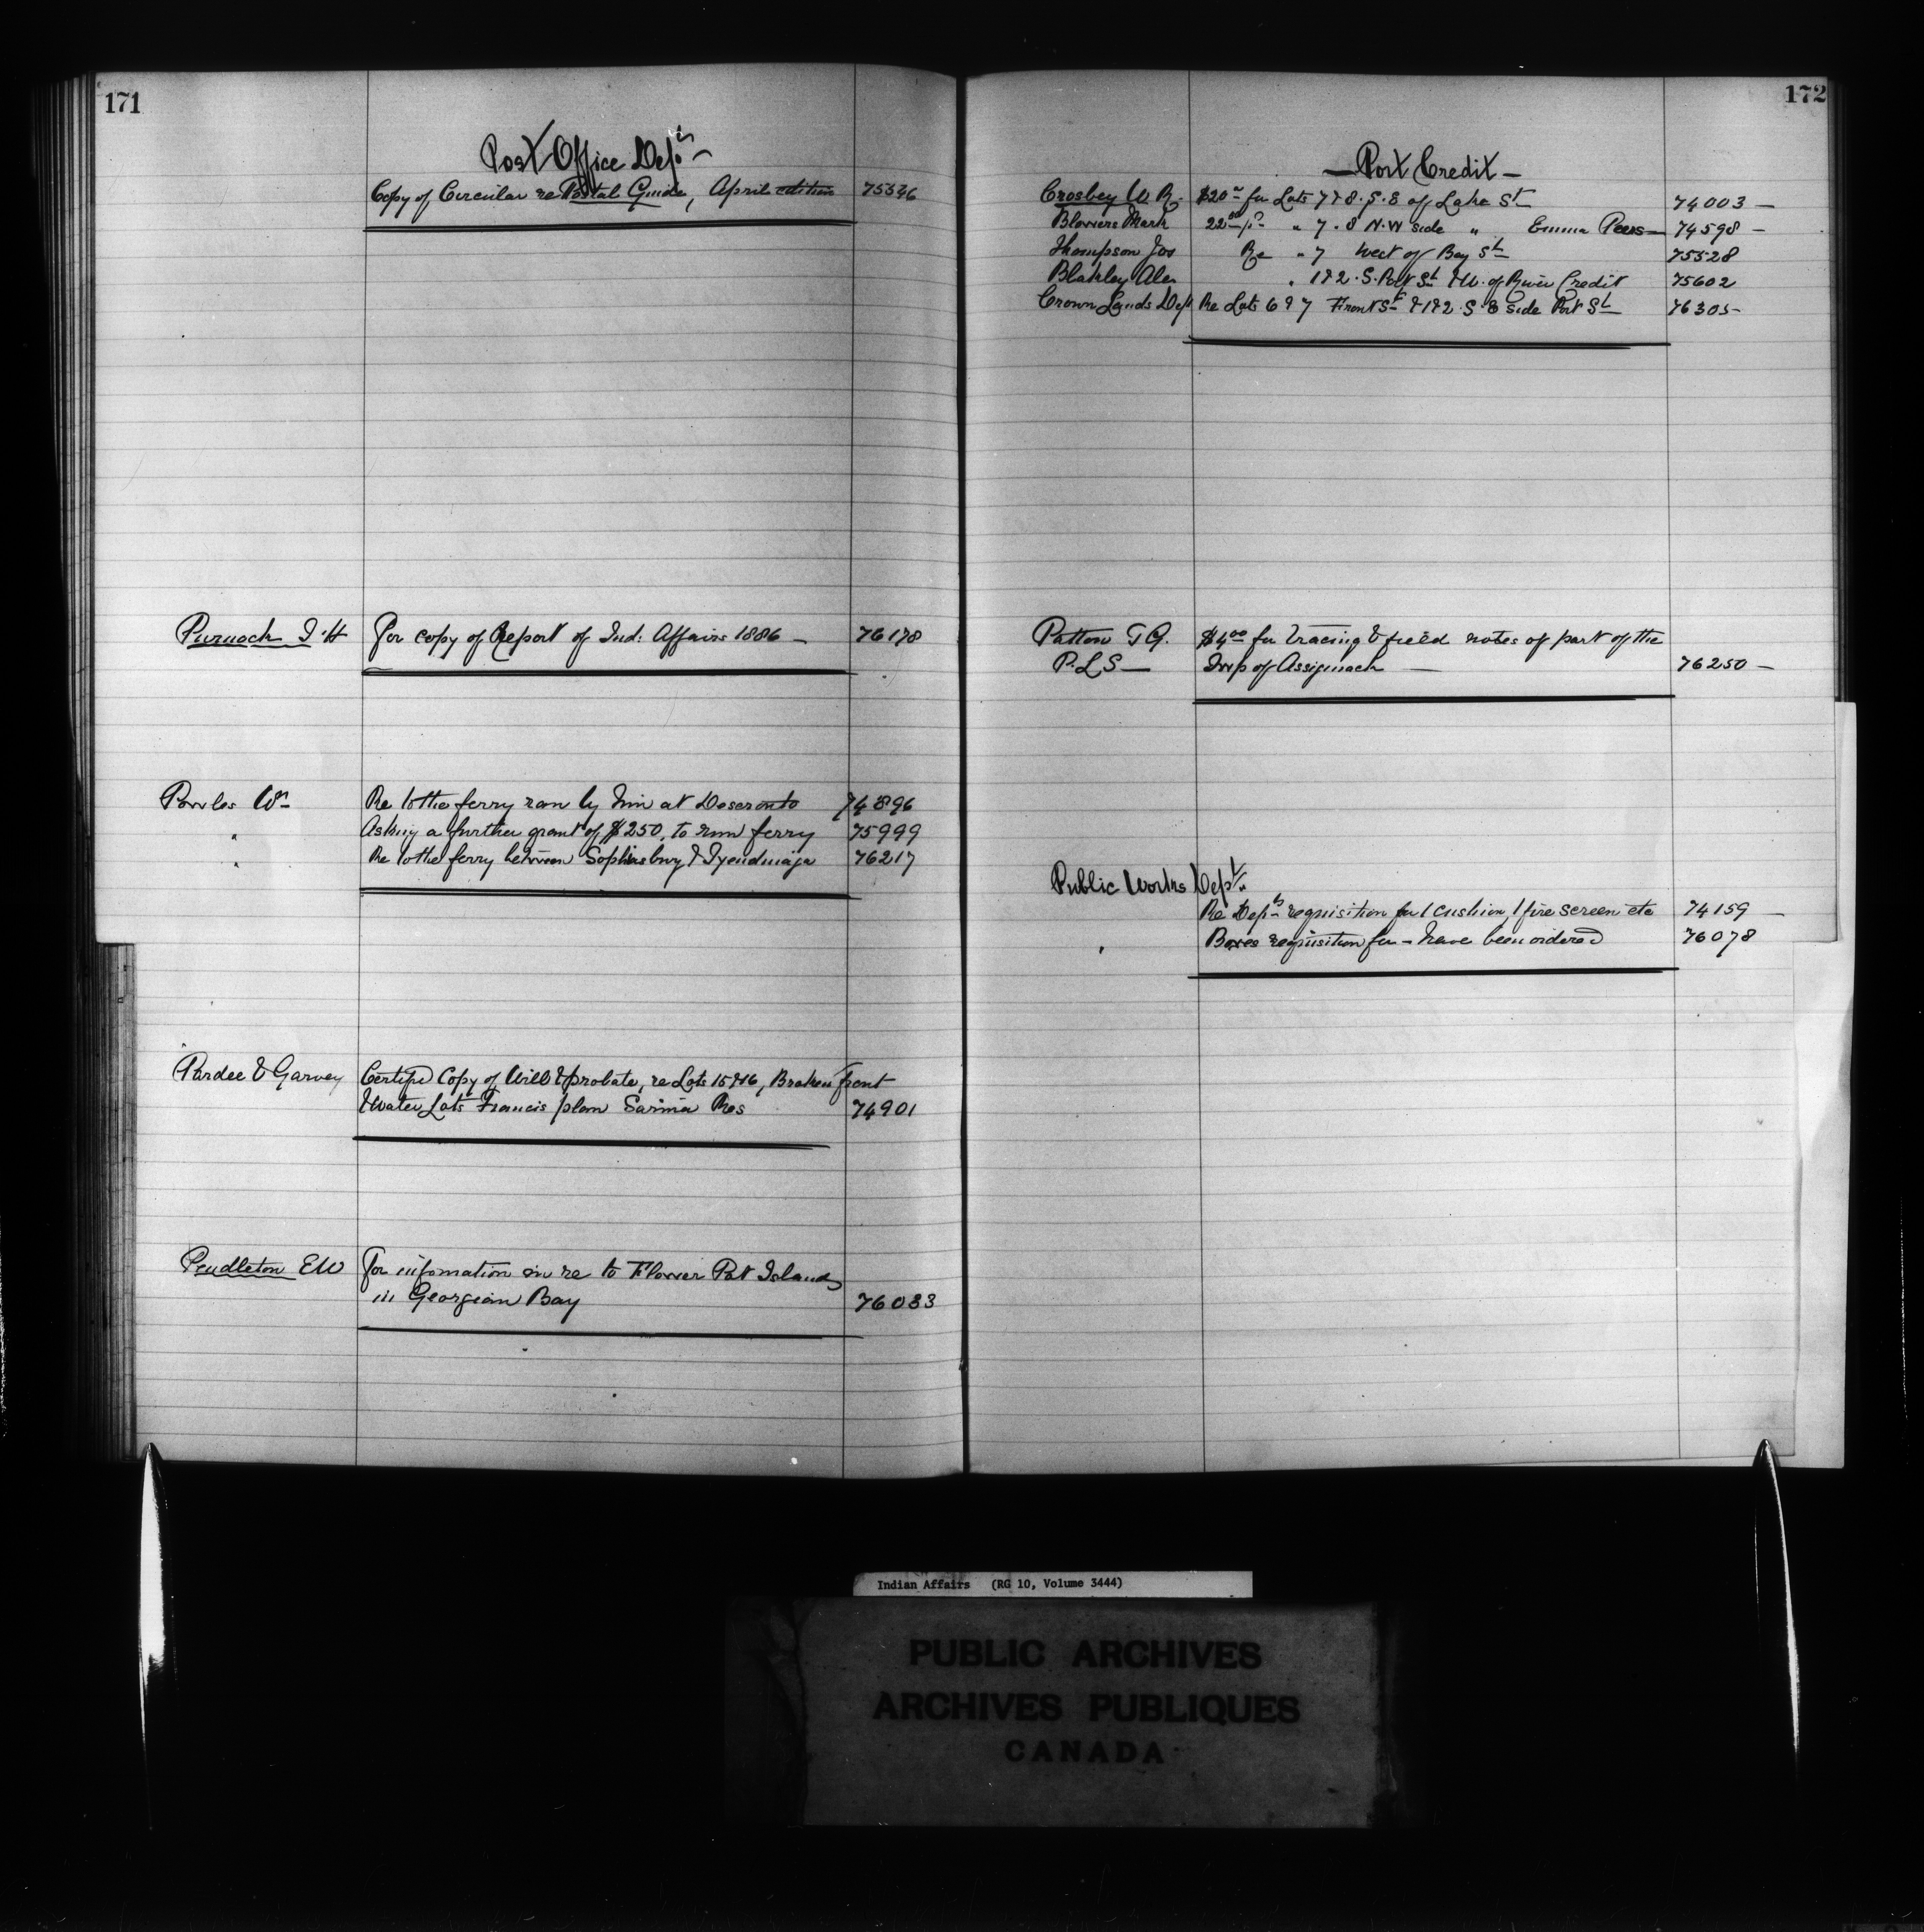 171
Post Office Dept
Copy of Circular re Postal Guide, April edition 75536
Purnoch J. H For copy of Report of Ind: Affairs 1886 - 76178
Powles Wm Re to the ferry ran by him at Deseronto 74896
" Asking a further grant of $250. to run ferry 75999
" Re to the ferry between Sophiasburg & Tyendinaga 76217
Pardee & Garvey Certified Copy of Will & probate, re Lots 15 & 16, Broken front
& Water Lots Francis plan Sarnia Res 74901
Pendleton EW For information in re to Flower Pot Islands
in Georgian Bay 76033
172
- Port Credit -
Crosbey W. R. $20 for Lots 7 & 8. S. E of Lake St 74003 -
Blowers Mark 22 00 " 7 . 8 N.W side " Emma Peers - 74598 -
Thompson Jos Re " 7 West of Bay St 75528
Blakley Alex " 1 & 2 . S. Port St & W. of River Credit 75602
Crown Lands Dept Re Lots 6 & 7 Front St & 1 & 2 . S. E side Port St 76305 -
Patton T G. $4 00 for tracing & field notes of part of the
P. L S - Twp of Assiginack - 76250 -
Public Works Dept
Re Dept requisition for 1 cushion, 1 fire screen etc 74159 -
" Boxes requisition for - have been ordered 76078
Indian Affairs (RG 10, Volume 3444)
PUBLIC ARCHIVES
ARCHIVES PUBLIQUES
CANADA